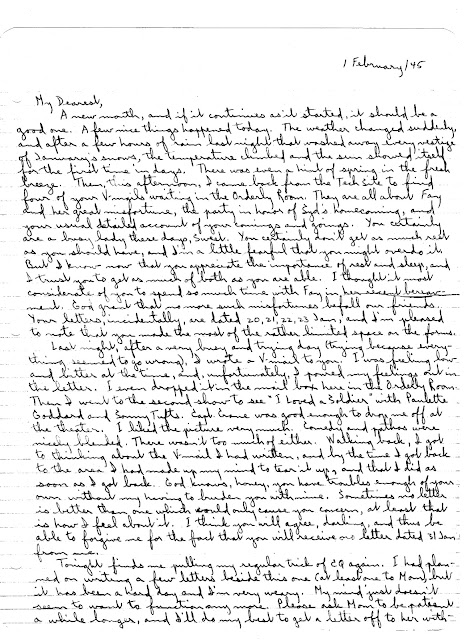 1 February/45
My Dearest,
A new month, and if it continues as it started, it should be a
good one. A few nice things happened today. The weather changed suddenly,
and after a few hours of rain last night that washed away every vestige
of January's snows, the temperature climbed and the sun showed itself
for the first time in days. There was even a hint of spring in the fresh
breeze. Then, this afternoon, I came back from the Tech Site to find
four of your V-mails waiting in the Orderly Room. They are all about Fay
and her great misfortune, the party in honor of Syd's homecoming, and
your usual detailed account of your comings and goings. You certainly
are a busy lady these days, Sweet. You certainly don't get as much rest
as you should have, and I'm a little fearful that you might overdo it.
But I know now that you appreciate the importance of rest and sleep, and
I trust you to get as much of both as you are able. I thought it most
considerate of you to spend so much time with Fay in her
ment. God grant that no more such misfortunes befall our friends.
Your letters, incidentally, are dated 20, 21, 22, 23 Jan, and I'm pleased
to note that you made the most of the rather limited space on the forms.
Last night, after a very busy and trying day (trying because every-
thing seemed to go wrong), I wrote a V-mail to you. I was feeling low
and bitter at the time, and, unfortunately, I poured my feelings out in
the letter. I even dropped it in the mail box here in the Orderly Room.
Then I went to the second show to see "I Loved a Soldier" with Paulette
Goddard and Sonny Tufts. Capt. was good enough to drop me off at
the theater. I liked the picture very much. Comedy and pathos were
nicely blended. There wasn't too much of either. Walking back, I got
to thinking about the V-mail I had written, and by the time I got back
to the area I had made up my mind to tear it up, and that I did as
soon as I got back. God knows, honey, you have troubles enough of your
own without my having to burden you with mine. Sometimes no letter
is better than one which would only cause you concern, at least that
is how I feel about it. I think you will agree, darling, and thus be
able to forgive me for the fact that you will receive no letter dated 31 Jan
from me.
Tonight finds me pulling my regular trick of CQ again. I had plan-
ned on writing a few letters beside this one (at least one to Mom), but
it has been a hard day and I'm very weary. My mind just doesn't
seem to want to function any more. Please ask Mom to be patient
a while longer, and I'll do my best to get a letter off to her with-